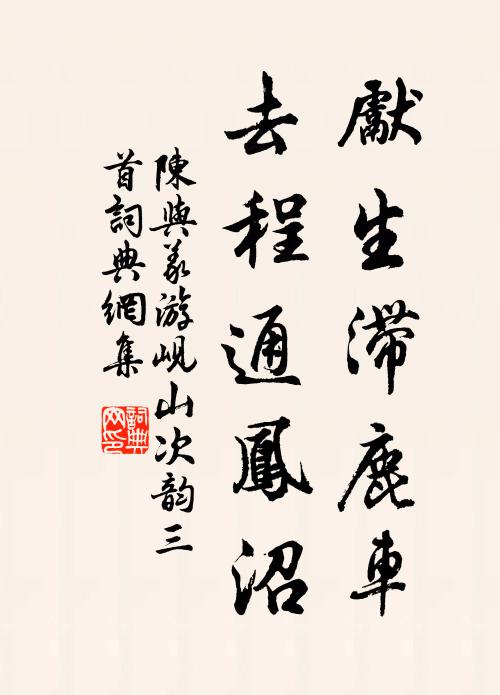 獻生滯鹿車
去程通鳳沼
陳與義游峴山次韵三
首詞典網集
詞典網印